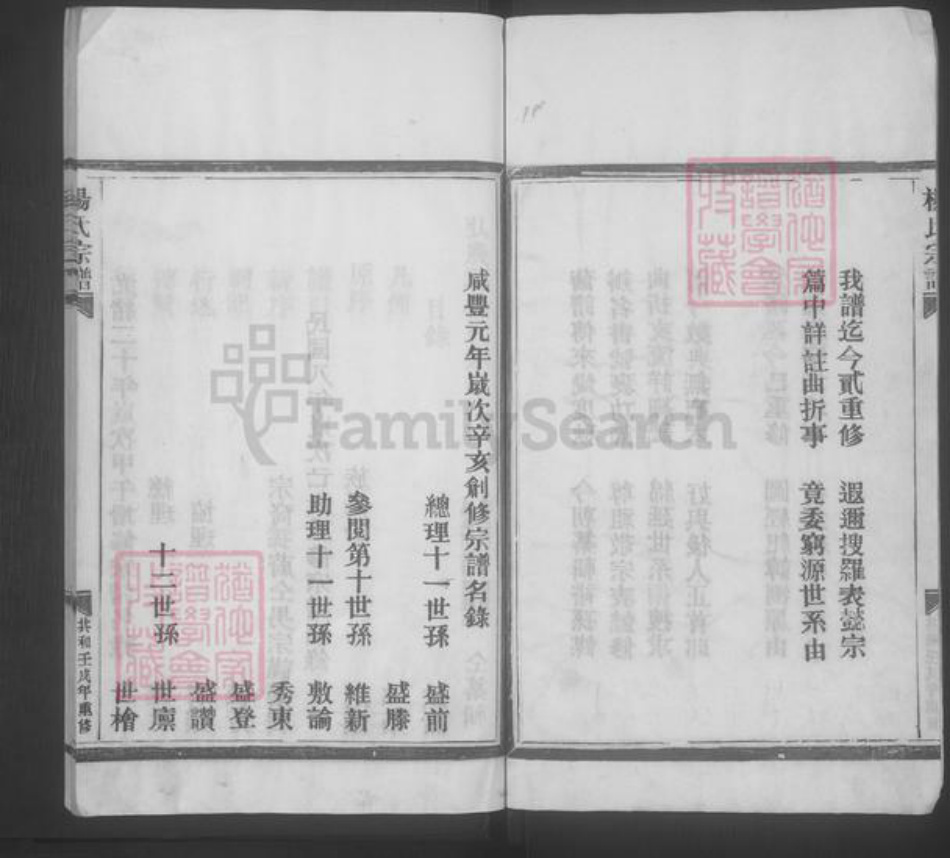 我譜迄今貳重修　遐邇搜羅表懿宗
篇中詳註曲折事　竟委窮源世系由
咸豐元年歲次辛亥創修宗譜名錄
總理十一世孫　盛前
盛滕
參閱第十世孫　維新
助理十一世孫　敷論
秀東
盛登
盛讚
十二世孫　世廩
世檜
楊氏宗譜
共和壬戌年重修
猶他家譜學會收藏
猶他家譜學會收藏
FamilySearch